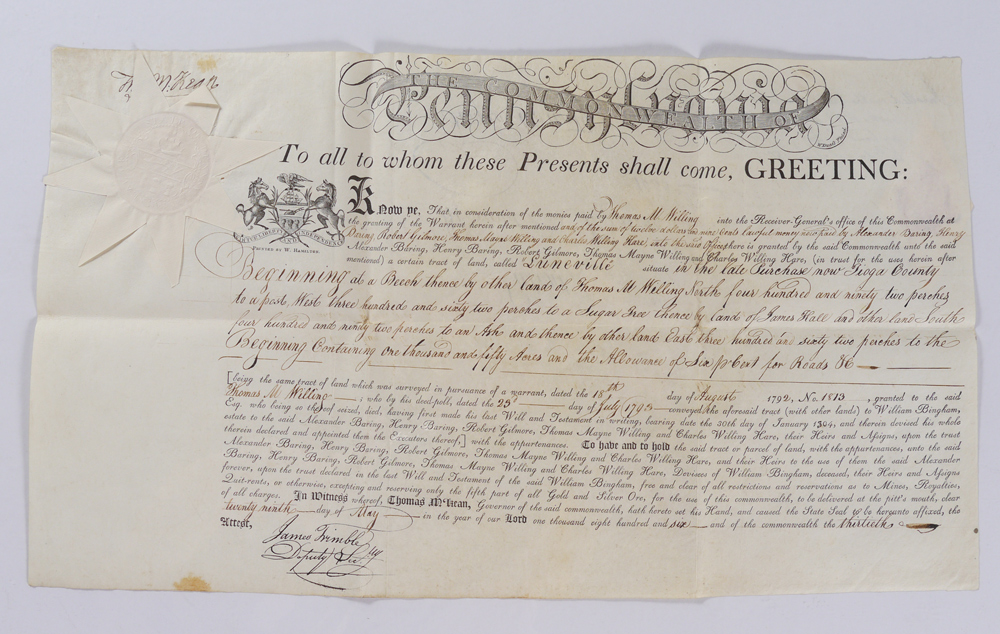 Tho M:Kean
THE COMMONWEALTH OF
Pennsylvania
To all to whom these Presents shall come, GREETING:
PRINTED BY W. HAMILTON.
Know ye, That in consideration of the monies paid by Thomas M Willing into the Receiver-General's office of this Commonwealth at
the granting of the Warrant herein after mentioned and of the sum of twelve dollars nine Cents lawful money now paid by Alexander Baring, Henry
Baring Robert Gilmore, Thomas Mayne Willing and Charles Willing Hare, into the said Office there is granted by the said Commonwealth unto the said
Alexander Baring, Henry Baring, Robert Gilmore, Thomas Mayne Willing and Charles Willing Hare, (in trust for the uses herein after
mentioned) a certain tract of land, called Luneville situate in the late Purchase now Tioga County
Beginning at a Beech thence by other land of Thomas M Willing North four hundred and ninety two perches
to a post, West three hundred and sixty two perches to a Sugar Tree thence by lands of James Hall and other land South
four hundred and ninety two perches to an Ash and thence by other land East three hundred and sixty two perches to the
Beginning Containing one thousand and fifty Acres and the Allowance of Six p Cent for Roads &c
[being the same tract of land which was surveyed in pursuance of a warrant, dated the 18th day of August 1792, No. 1813, granted to the said
Thomas M Willing, who by his deed-poll, dated the 23d day of July 1793 conveyed the aforesaid tract (with other lands) to William Bingham,
Esq. who being so thereof seized, died, having first made his last Will and Testament in writing, bearing date the 30th day of January 1804, and therein devised his whole
estate to the said Alexander Baring, Henry Baring, Robert Gilmore, Thomas Mayne Willing and Charles Willing Hare, their Heirs and Assigns, upon the trust
therein declared and appointed them the Executors thereof,] with the appurtenances. To have and to hold the said tract or parcel of land, with the appurtenances, unto the said
Alexander Baring, Henry Baring, Robert Gilmore, Thomas Mayne Willing and Charles Willing Hare, and their Heirs to the use of them the said Alexander
Baring, Henry Baring, Robert Gilmore, Thomas Mayne Willing and Charles Willing Hare, Devisees of William Bingham, deceased, their Heirs and Assigns
forever, upon the trust declared in the last Will and Testament of the said William Bingham, free and clear of all restrictions and reservations as to Mines, Royalties,
Quit-rents, or otherwise, excepting and reserving only the fifth part of all Gold and Silver Ore, for the use of this commonwealth, to be delivered at the pitt's mouth, clear
of all charges. In Witness whereof, Thomas M'Kean, Governor of the said commonwealth, hath hereto set his Hand, and caused the State Seal to be hereunto affixed, the
twenty ninth day of May in the year of our Lord one thousand eight hundred and six and of the commonwealth the thirtieth
Attest,
James Trimble
Deputy Secy